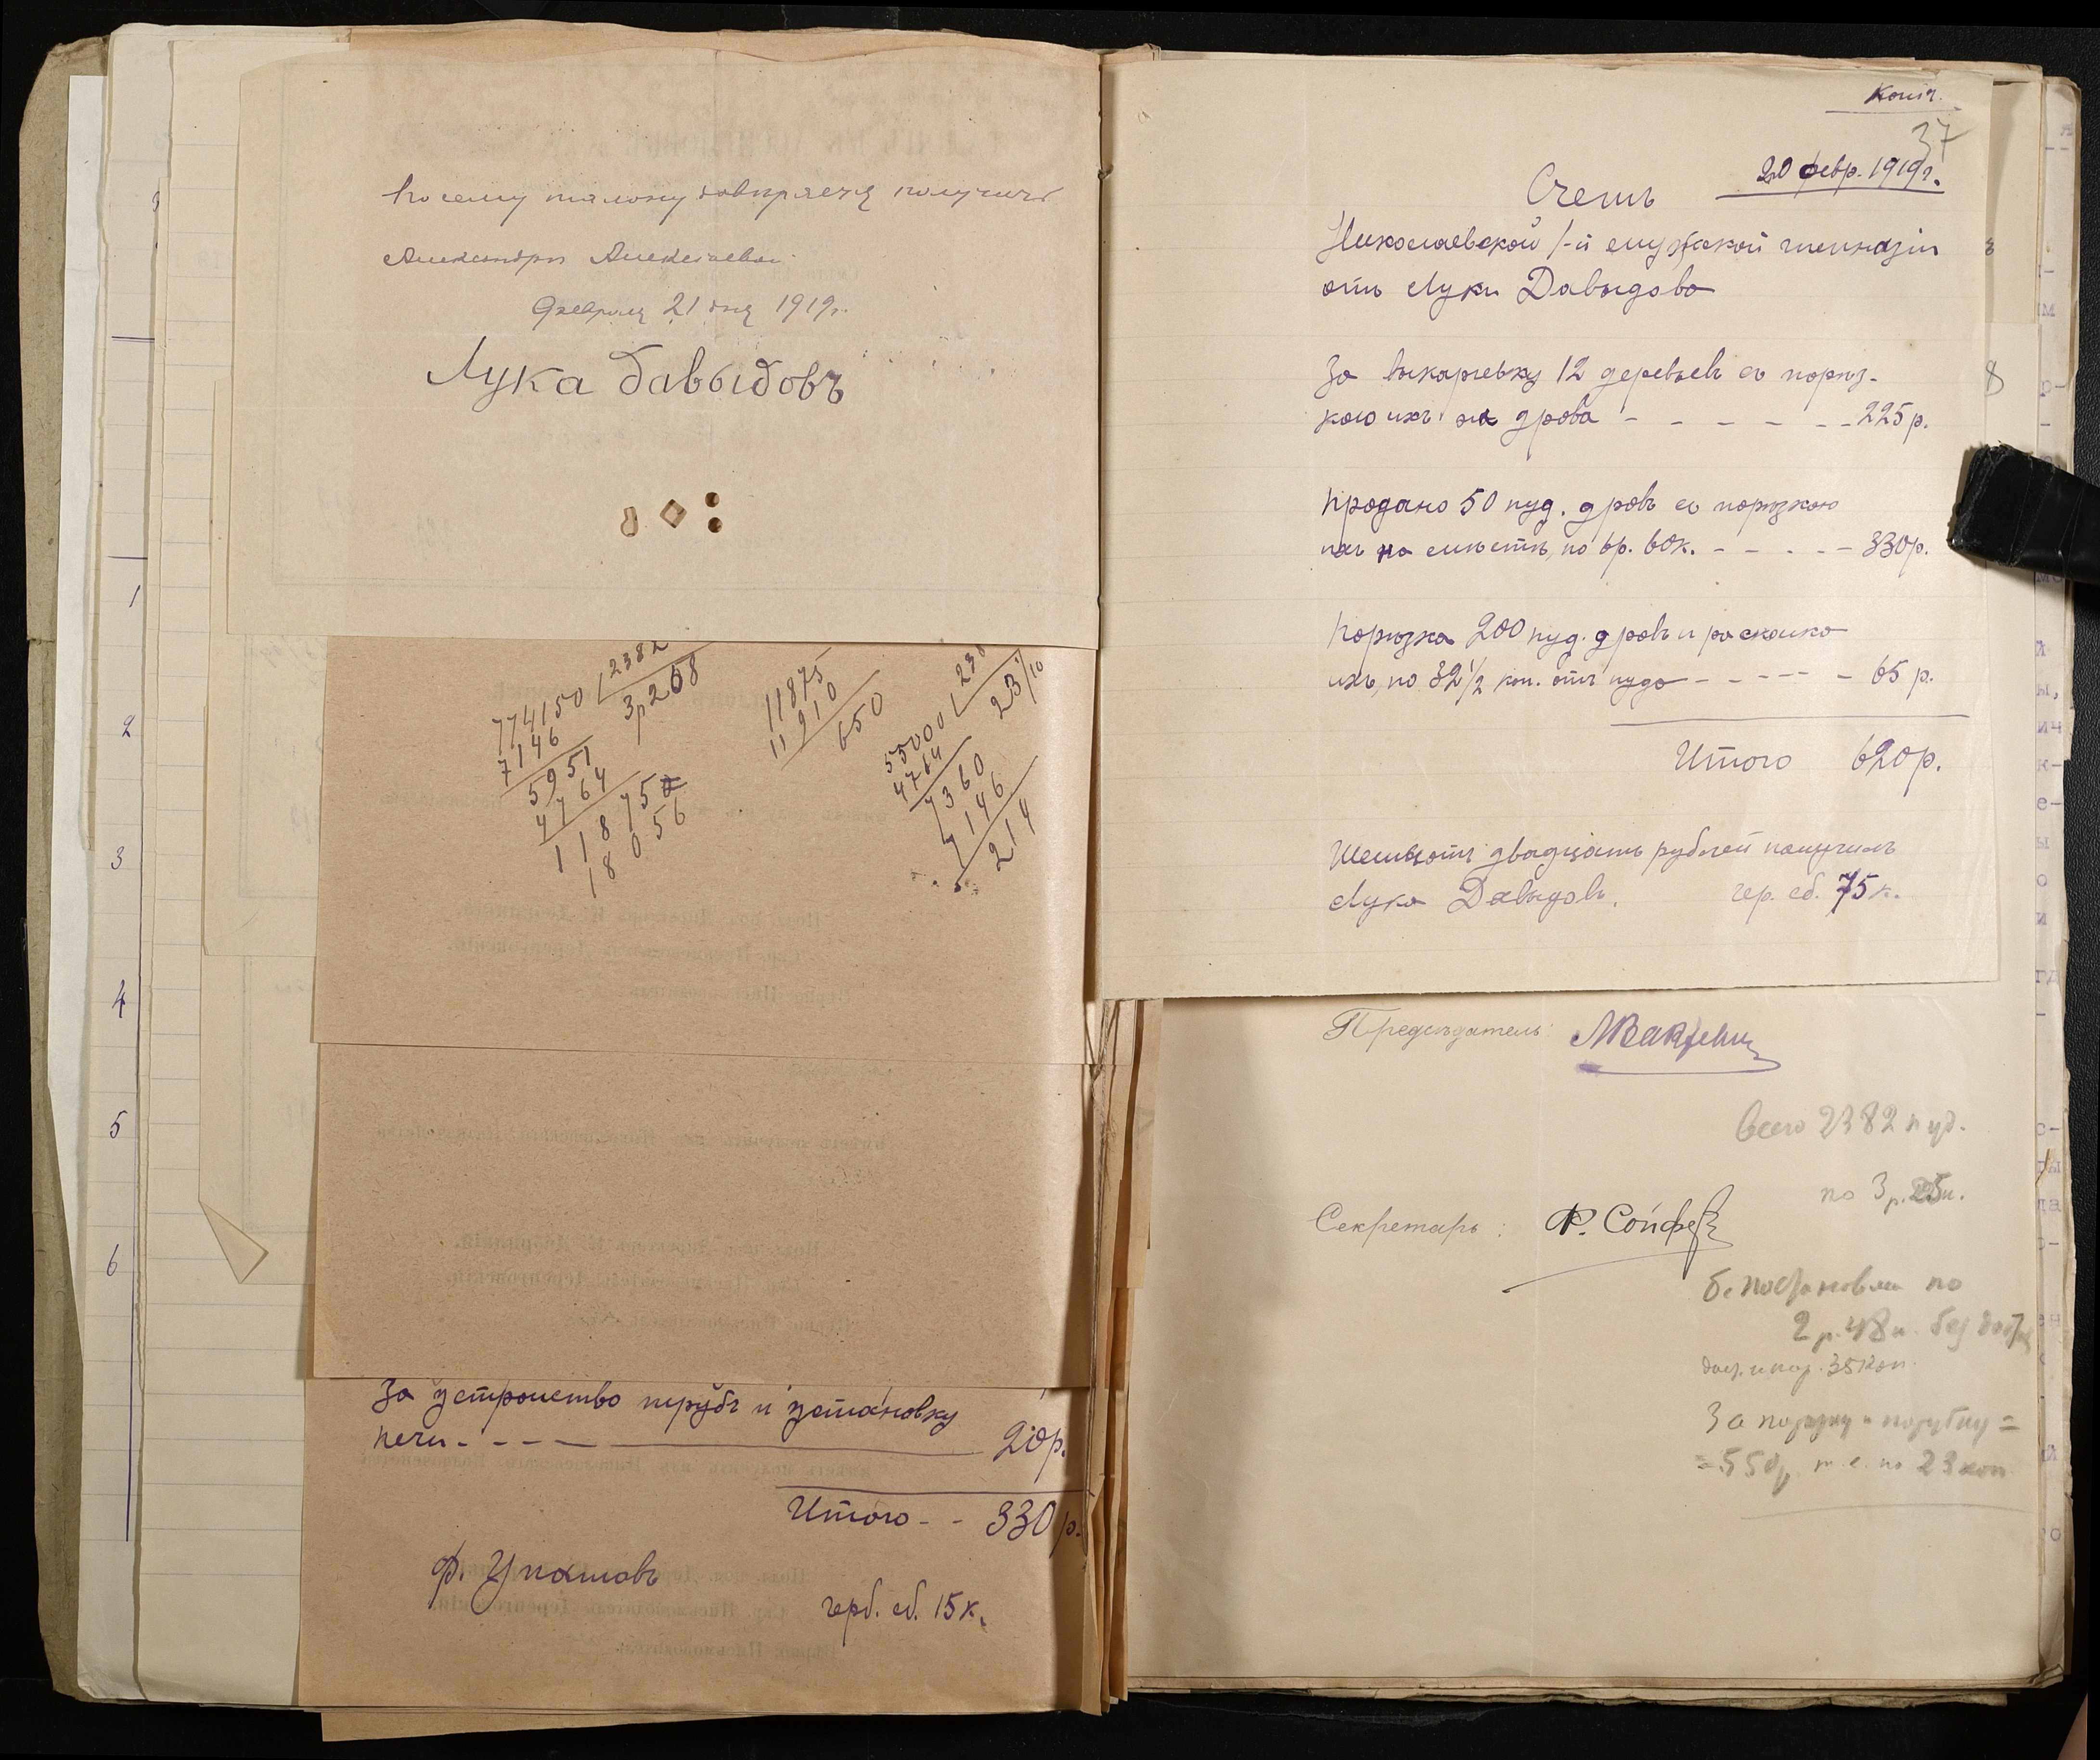 По сему талону довѣряется получить
Александрѣ Алексѣевой
Февраля 21 дня 1919г.
Лука Давыдовъ
774150 2382
7146 3р268
5951
4764
11875
18056
11875
11910
650
55000 238
4764 23 1/10
7360
7146
214
За устройство трубъ и установку
печи - - - - 20р.
Итого - - 330 р.
герб. сб. 15к.
1
2
3
4
5
6
Копія.
37
20 февр. 1919г.
Счетъ
Николаевской 1-й мужской гимназіи
отъ Луки Давыдова
За выкарчевку 12 деревьевъ съ порѣз-
кою ихъ на дрова - - - - - - 225р.
Продано 50 пуд. дровъ съ порѣзкою
ихъ на мѣстѣ, по 6р. 60к. - - - - - 330р.
Порѣзка 200 пуд. дровъ и расколка
ихъ, по 32 1/2 коп. отъ пуда - - - - - 65 р.
Итого 620р.
Шестьсотъ двадцать рублей получилъ
Лука Давыдовъ. гер. сб. 75к.
Предсѣдатель:
Всего 2382 пуд.
по 3р. 25к.
Секретарь: Ф. Сойфер
2 р. 48к. без
35коп.
За порѣзку и порубку =
= 550р. т. е. по 23 коп